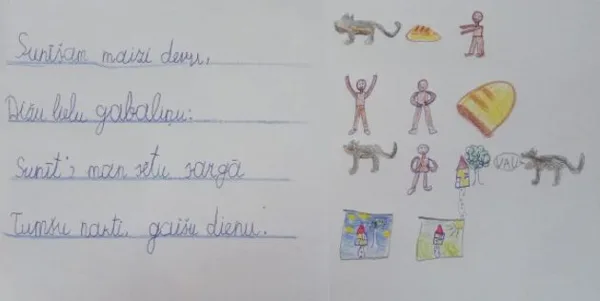 Sunīšam maizi devu,
Dižu lielu gabaliņu:
Sunīt's man sētu sargā
Tumšu nakti, gaišu dienu.
VAU